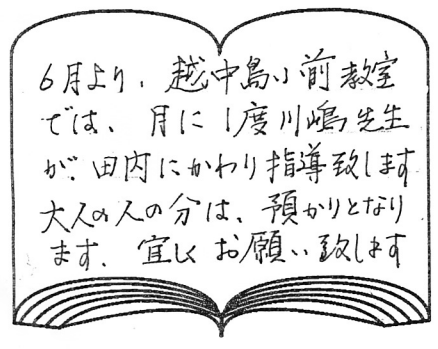 6月より、越中島小前教室
では、月に1度川嶋先生
が、田内にかわり指導致します
大人の人の分は、預かりとなり
ます、宜しくお願い致します